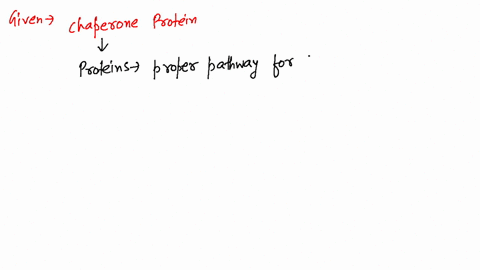 Given→ Chaperone Protein
↓
Proteins→ proper pathway for